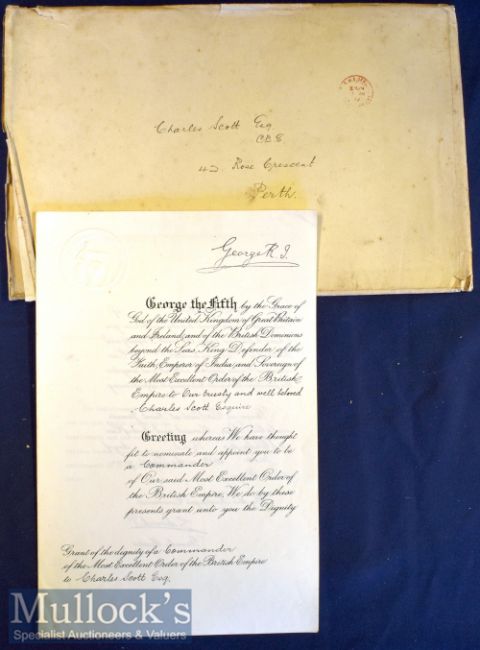 Charles Scott Esq
CBE
42 Rose Crescent
Perth.
George R. I.
George the Fifth by the Grace of
God of the United Kingdom of Great Britain
and Ireland, and of the British Dominions
beyond the Seas, King Defender of the
Faith, Emperor of India, and Sovereign of
the Most Excellent Order of the British
Empire to Our trusty and well beloved
Charles Scott Esquire
Greeting whereas We have thought
fit to nominate and appoint you to be
a Commander
of Our said Most Excellent Order of
the British Empire, We do by these
presents grant unto you the Dignity
Grant of the dignity of a Commander
of the Most Excellent Order of the British Empire
to Charles Scott Esq.
Mullock's
Specialist Auctioneers & Valuers